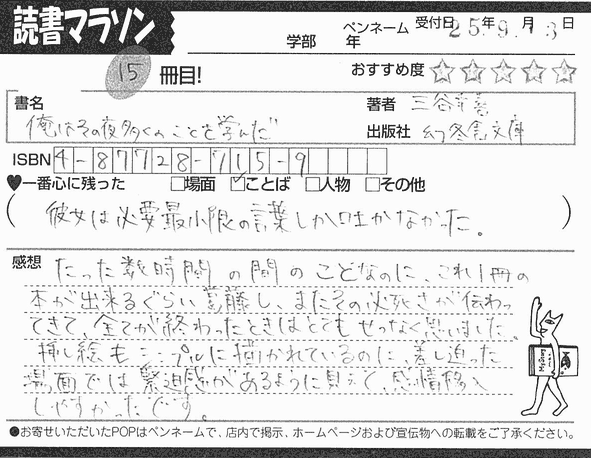 読書マラソン
学部 年 ペンネーム 受付日 25年 9月 13日
15 冊目! おすすめ度 ☆☆☆☆☆
書名 俺はその夜多くのことを学んだ
著者 三谷幸喜
出版社 幻冬舎文庫
ISBN 4-87728-715-9
♥一番心に残った □場面 ☑ことば □人物 □その他
(彼女は必要最小限の言葉しか吐かなかった。)
感想 たった数時間の間のことなのに、これ1冊の
本が出来るぐらい葛藤し、またその必死さが伝わっ
てきて、全てが終わったときはとてもせつなく思いました。
挿し絵もシンプルに描かれているのに、差し迫った
場面では緊迫感があるように見えて、感情移入
しやすかったです。
●お寄せいただいたPOPはペンネームで、店内で掲示、ホームページおよび宣伝物への転載をご了承ください。